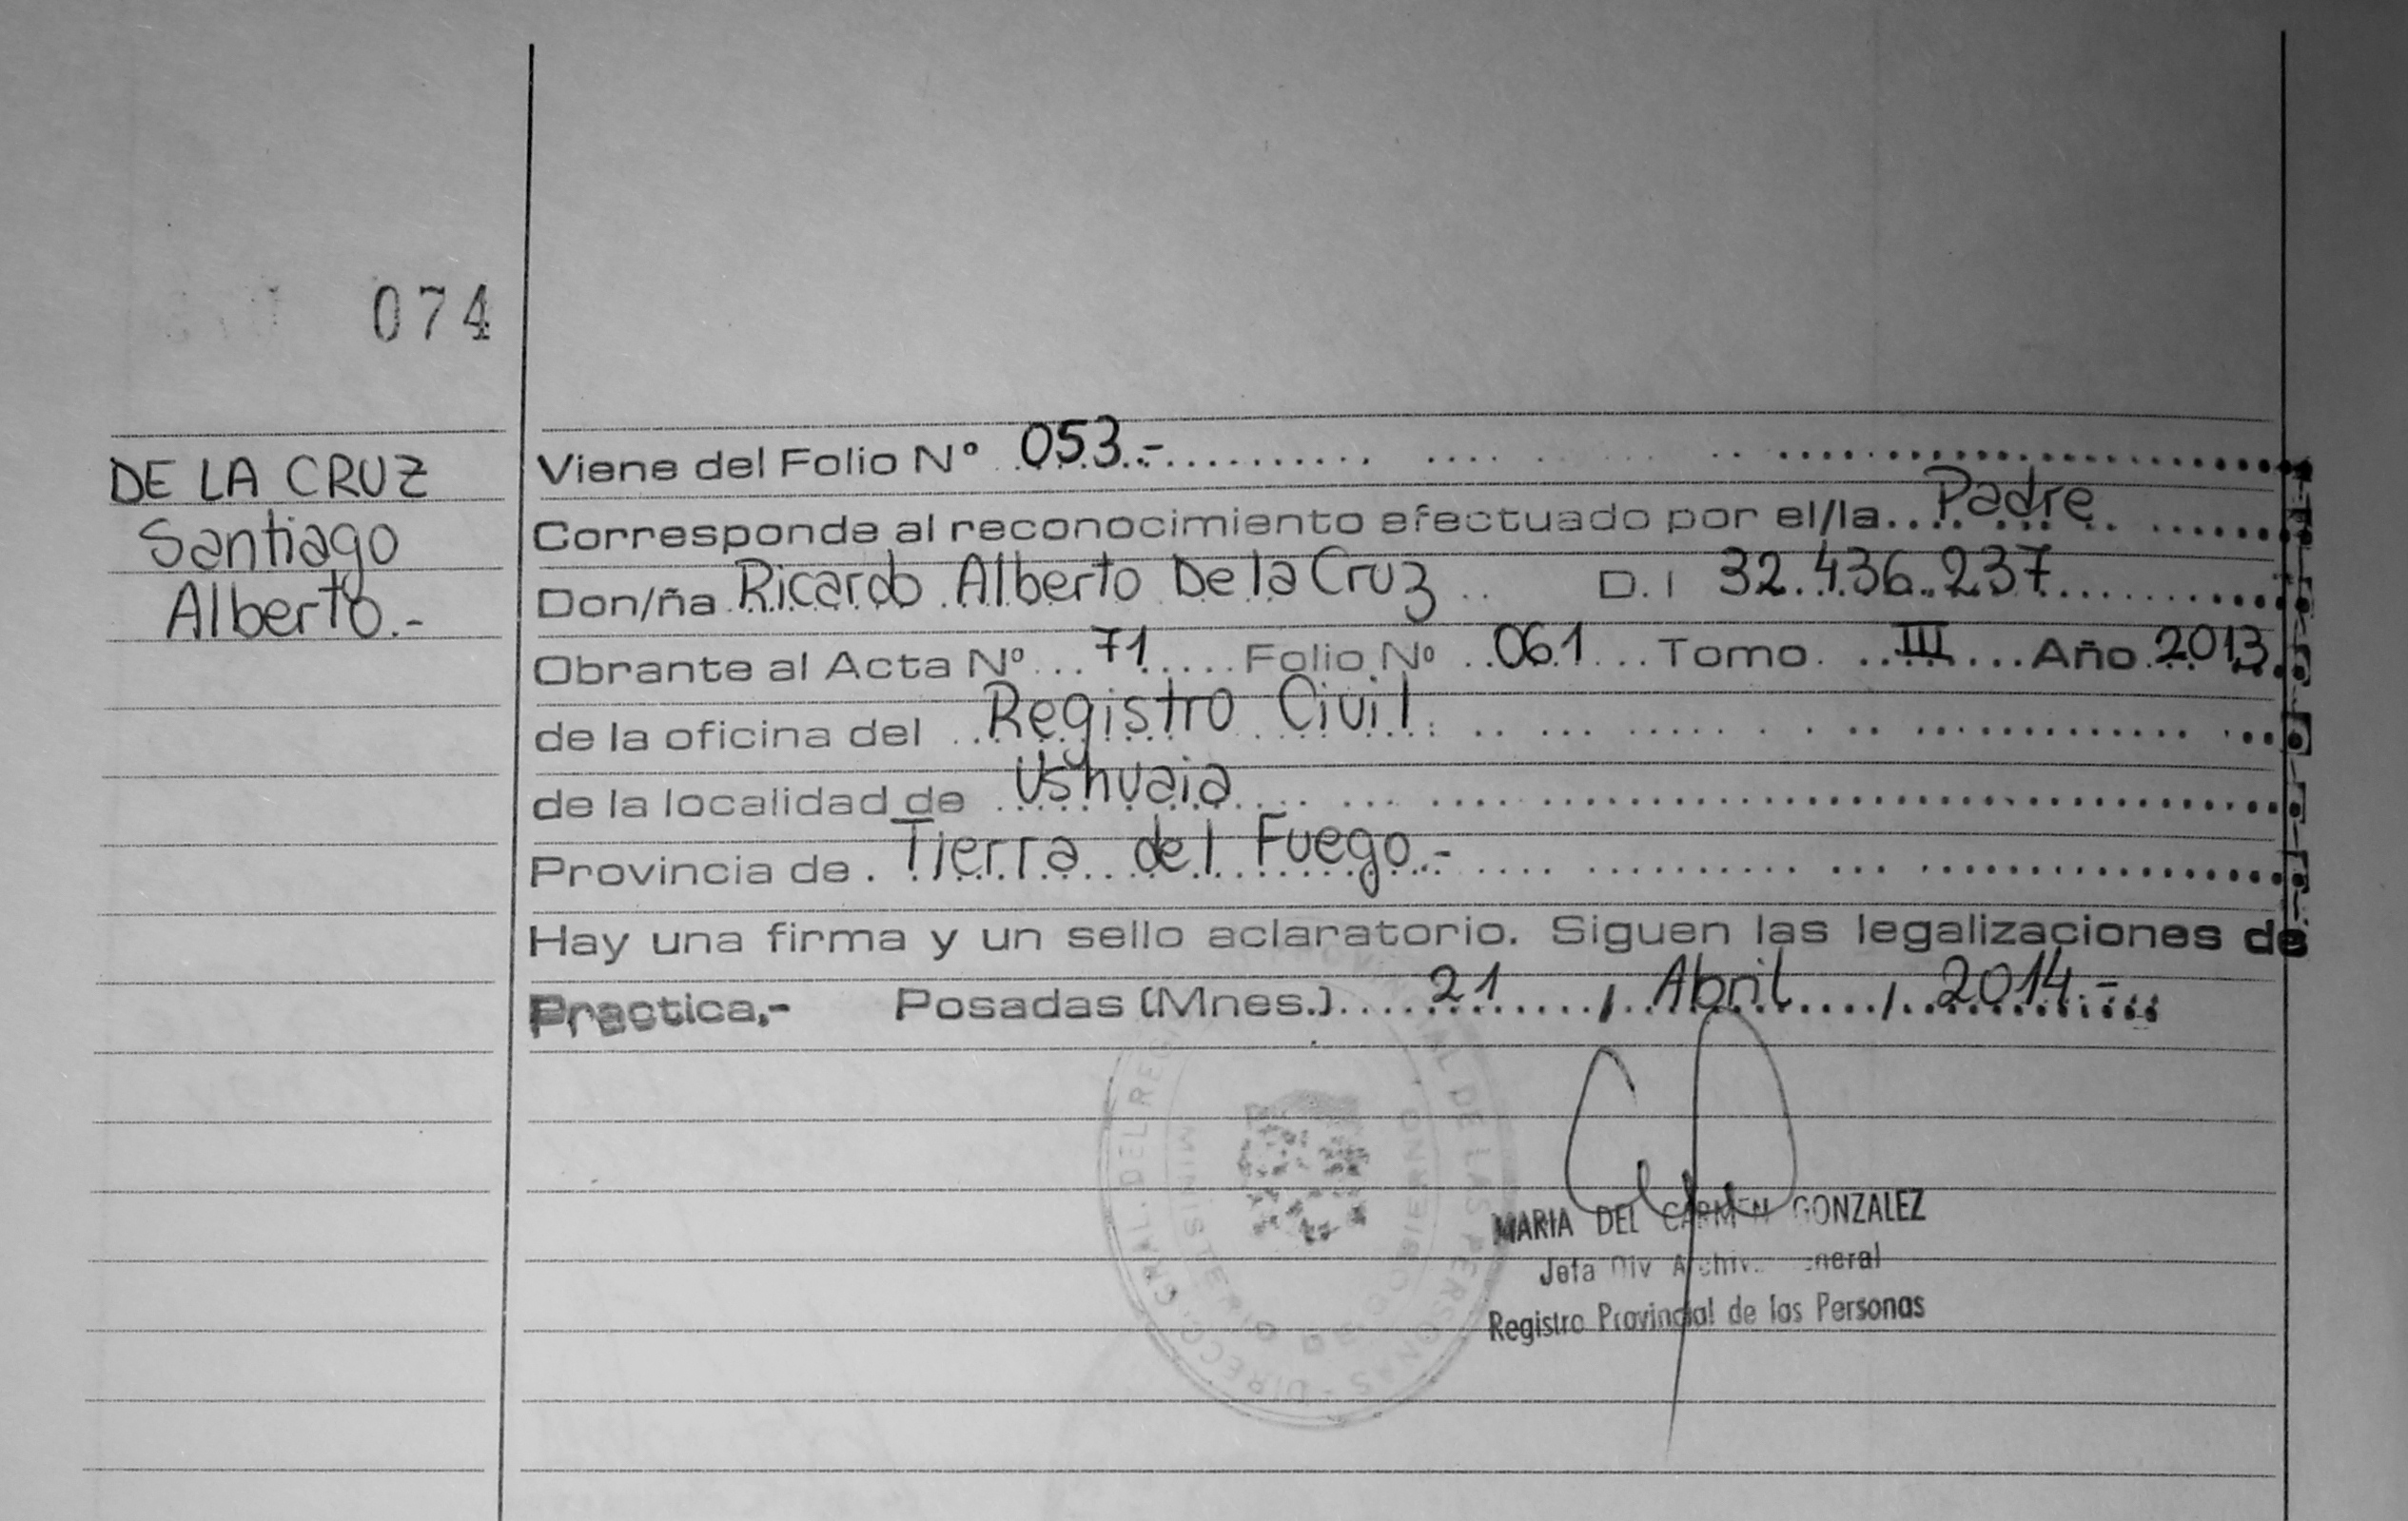 074
DE LA CRUZ
Santiago
Alberto.-
Viene del Folio Nº 053.-
Corresponde al reconocimiento efectuado por el/la Padre
Don/ña Ricardo Alberto De la Cruz D.I 32.436.237
Obrante al Acta Nº 71 Folio Nº 061 Tomo III Año 2013
de la oficina del Registro Civil
de la localidad de Ushuaia
Provincia de Tierra del Fuego.-
Hay una firma y un sello aclaratorio. Siguen las legalizaciones de
Practica,- Posadas (Mnes.) 21 / Abril / 2014.-
MARIA DEL CARMEN GONZALEZ
Jefa Div Archivo General
Registro Provincial de las Personas
DIRECC. GRAL. DEL REG
AL DE LAS PERSONAS
GOBIERNO